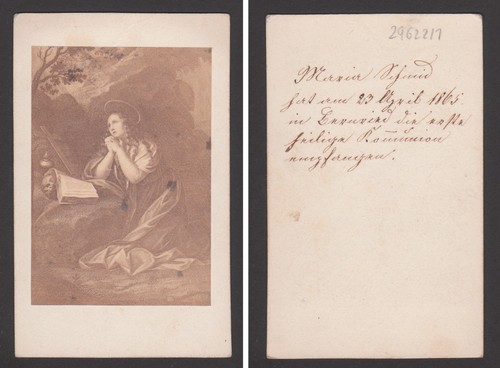 2962217
Maria Schmid
hat am 23 April 1865
in Bernried die erste
heilige Kommunion
empfangen.